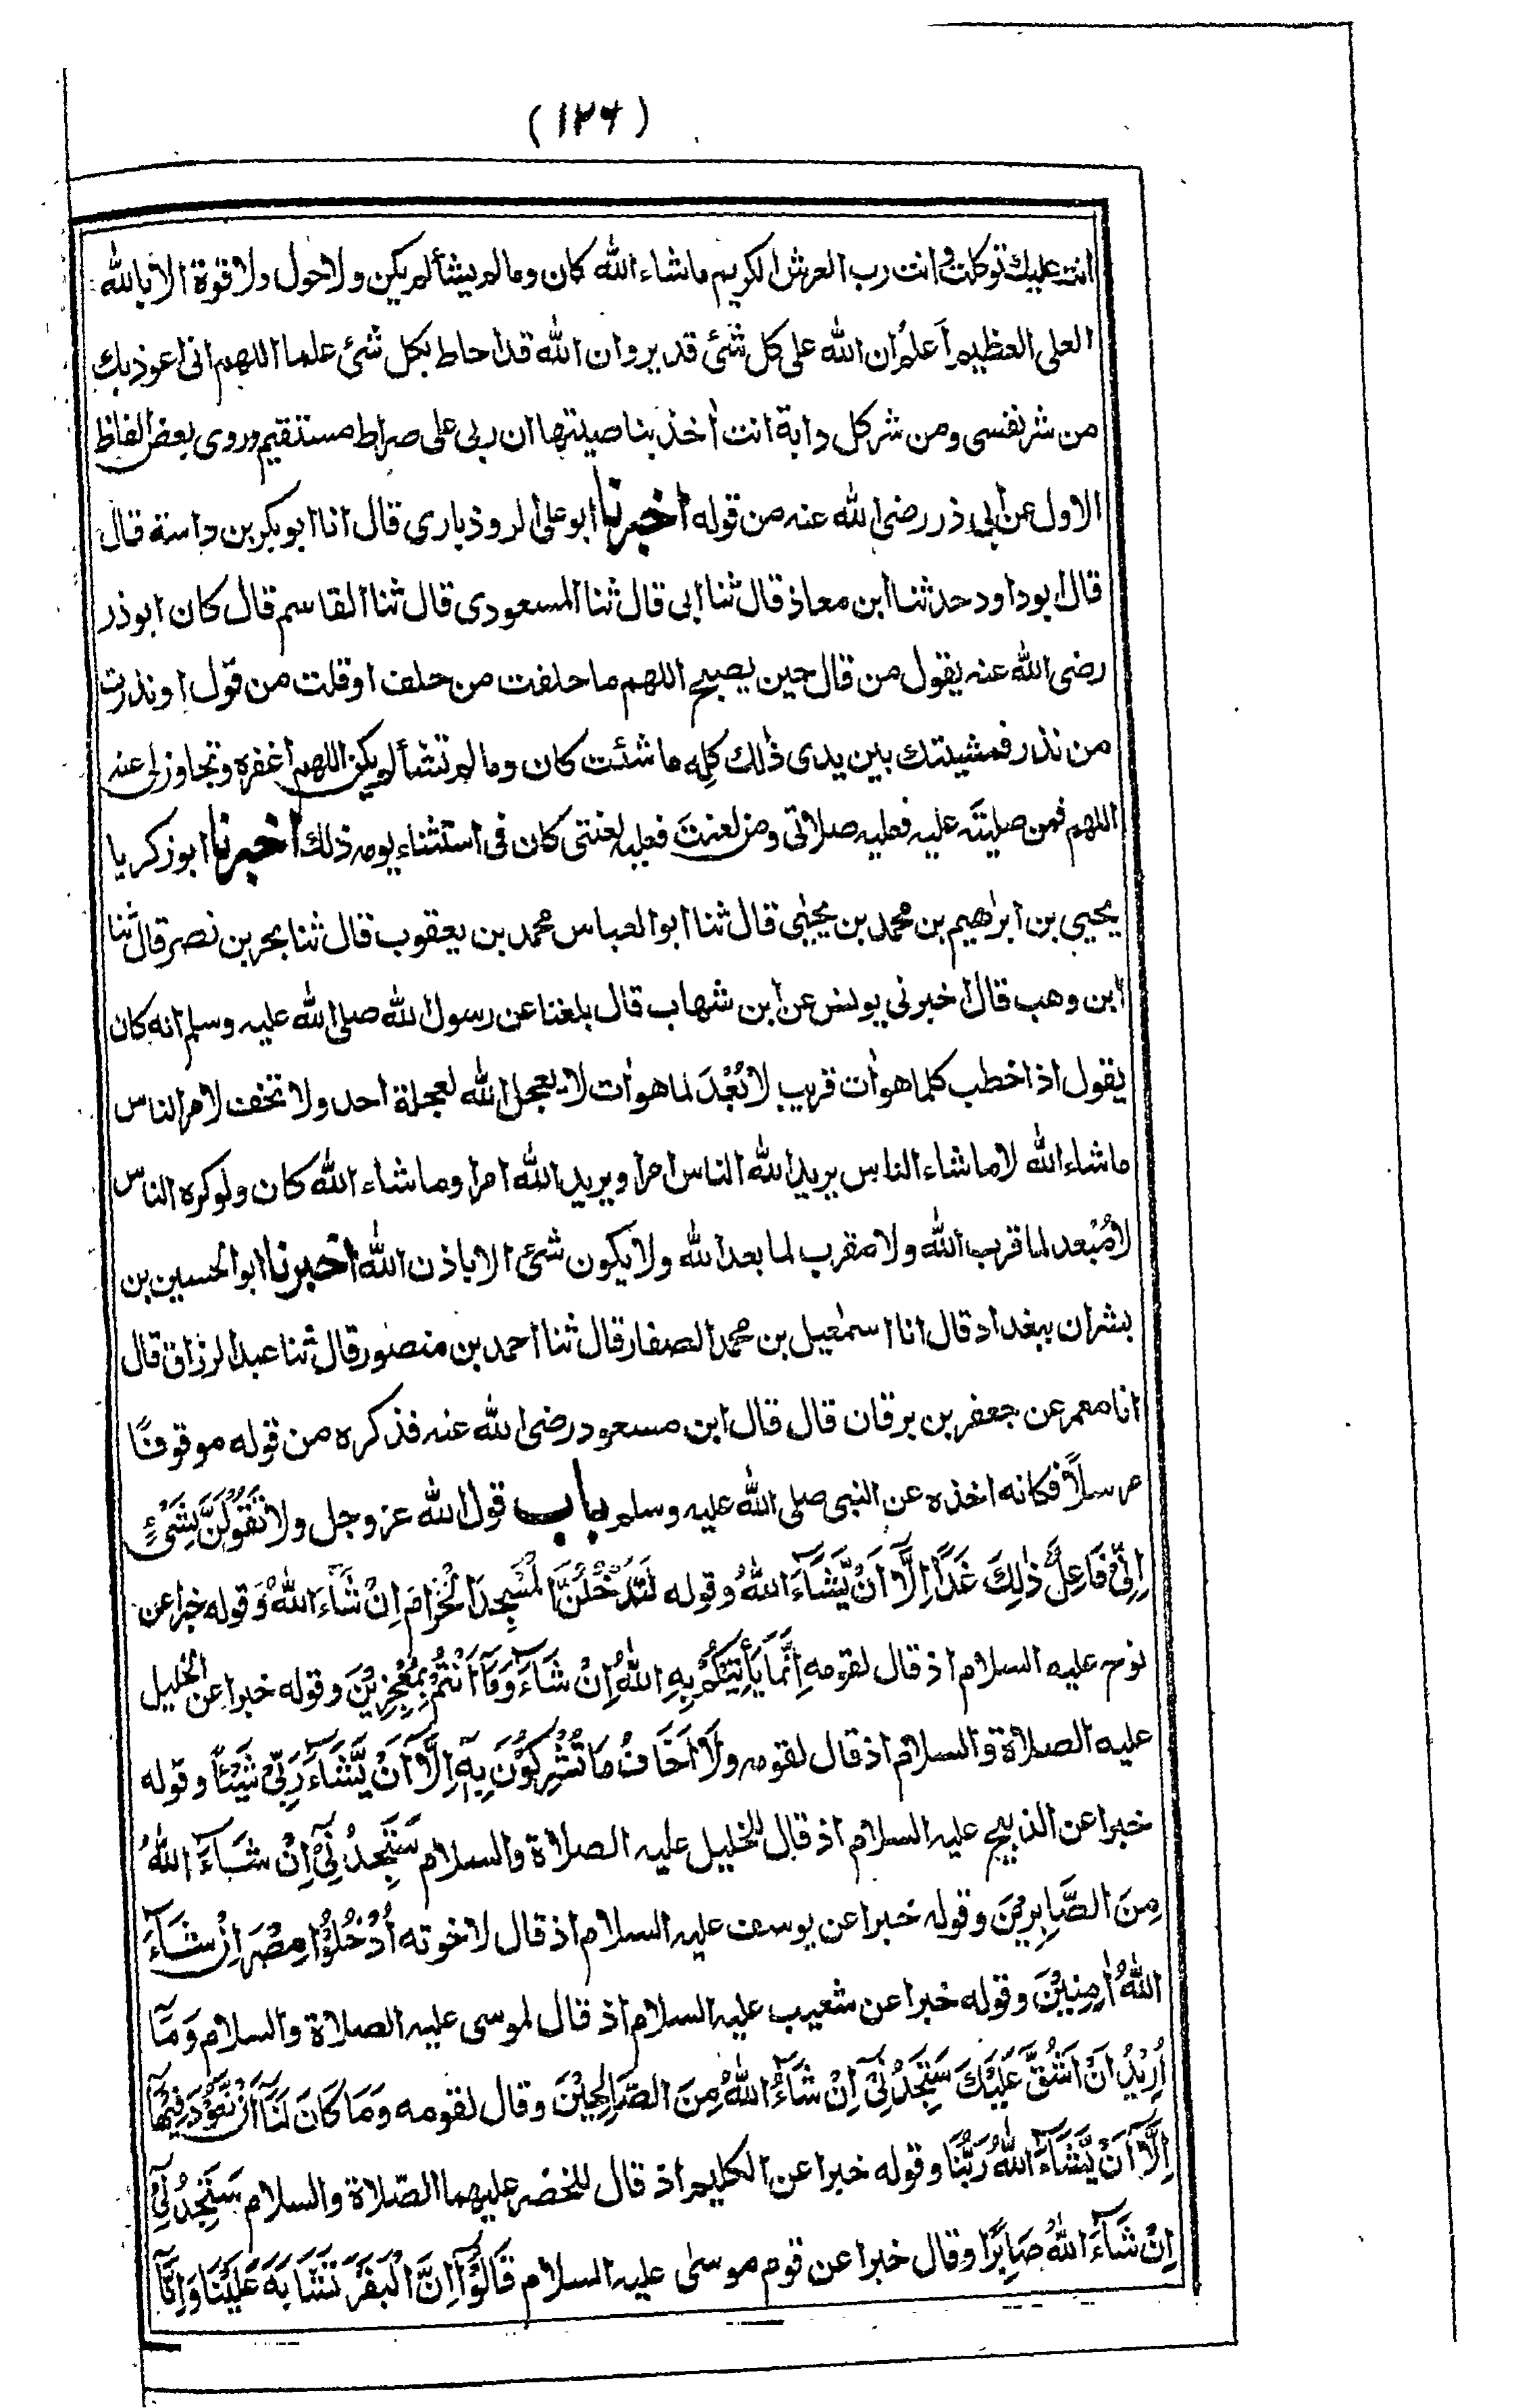 (١٢٦)
انت عليك توكلت وانت رب العرش الكريم ماشاء الله كان ومالم يشأ لم يكن ولاحول ولا قوة الا بالله
العلى العظيم اَعلمُ ان الله على كل شئ قدير وان الله قد احاط بكل شئ علما اللهم انى اعوذ بك
من شر نفسى ومن شر كل دابة انت اٰخذ بناصيتها ان ربى على صراط مستقيم وروى بعض الفاظ
الاول عن ابى ذر رضى الله عنه من قوله اخبرنا ابو على الروذبارى قال انا ابو بكر بن داسة قال
قال ابو داود حدثنا ابن معاذ قال ثنا ابى قال ثنا المسعودى قال ثنا القاسم قال كان ابو ذر
رضى الله عنه يقول من قال حين يصبح اللهم ما حلفت من حلف او قلت من قول او نذرت
من نذر فمشيتك بين يدى ذٰلك كلِه ما شئت كان ومالم تشأ لم يكن اللهم اغفره وتجاوز لى عنه
اللهم فمن صليتَ عليه فعليه صلاتى ومن لعنتَ فعليه لعنتى كان فى استثناء يومه ذلك اخبرنا ابو زكريا
يحيى بن ابراهيم بن محمد بن يحيٰى قال ثنا ابو العباس محمد بن يعقوب قال ثنا بحر بن نصر قال ثنا
ابن وهب قال اخبرنى يونس عن ابن شهاب قال بلغنا عن رسول الله صلى الله عليه وسلم انه كان
يقول اذا خطب كلما هو اٰت قريب لا بُعْدَ لما هو اٰت لا يعجل الله لعجلة احد ولا تخف لامر الناس
ماشاء الله لا ماشاء الناس يريد الله الناس امرا ويريد الله امرا وماشاء الله كان ولو كره الناس
لا مُبْعد لما قرب الله ولا مقرب لما بعد الله ولا يكون شئ الا باذن الله اخبرنا ابو الحسين بن
بشران ببغداد قال انا اسمٰعيل بن محمد الصفار قال ثنا احمد بن منصور قال ثنا عبد الرزاق قال
انا معمر عن جعفر بن برقان قال قال ابن مسعود رضى الله عنه فذكره من قوله موقوفًا
مرسلًا فكانه اخذه عن النبى صلى الله عليه وسلم باب قول الله عز وجل ولا تَقُوْلَنَّ لِشَىْءٍ
اِنِّىْ فَاعِلٌ ذٰلِكَ غَدًا اِلَّآ اَنْ يَّشَآءَ اللهُ وقوله لَتَدْخُلُنَّ الْمَسْجِدَ الْحَرَامَ اِنْ شَآءَ اللهُ وَقوله خبرا عن
نوح عليه السلام اذ قال لقومه اِنَّمَا يَأْتِيْكُمْ بِهِ اللهُ اِنْ شَآءَ وَمَآ اَنْتُمْ بِمُعْجِزِيْنَ وقوله خبرا عن الخليل
عليه الصلاة والسلام اذ قال لقومه وَلَآ اَخَافُ مَا تُشْرِكُوْنَ بِهٖٓ اِلَّآ اَنْ يَّشَآءَ رَبِّىْ شَيْئًا وقوله
خبرا عن الذبيح عليه السلام اذ قال للخليل عليه الصلاة والسلام سَتَجِدُنِىْٓ اِنْ شَآءَ اللهُ
مِنَ الصَّابِرِيْنَ وقوله خبرا عن يوسف عليه السلام اذ قال لاخوته اُدْخُلُوْا مِصْرَ اِنْ شَآءَ
اللهُ اٰمِنِيْنَ وقوله خبرا عن شعيب عليه السلام اذ قال لموسى عليه الصلاة والسلام وَمَآ
اُرِيْدُ اَنْ اَشُقَّ عَلَيْكَ سَتَجِدُنِىْٓ اِنْ شَآءَ اللهُ مِنَ الصَّالِحِيْنَ وقال لقومه وَمَا كَانَ لَنَآ اَنْ نَّعُوْدَ فِيْهَآ
اِلَّآ اَنْ يَّشَآءَ اللهُ رَبُّنَا وقوله خبرا عن الكليم اذ قال للخضر عليهما الصّلاة والسلام سَتَجِدُنِىْٓ
اِنْ شَآءَ اللهُ صَابِرًا وقال خبرا عن قوم موسىٰ عليه السلام قَالُوْٓا اِنَّ الْبَقَرَ تَشَابَهَ عَلَيْنَا وَاِنَّآ